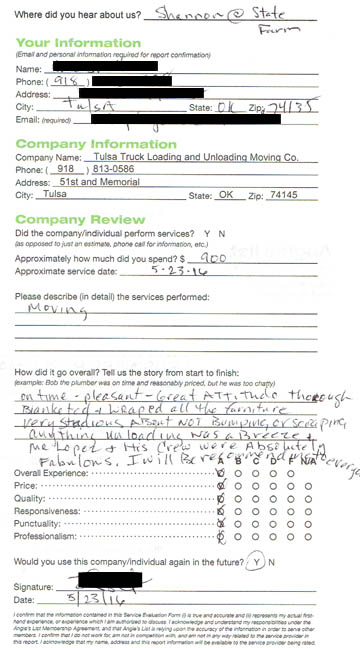 Where did you hear about us? Shannon @ State
Farm
Your Information
(Email and personal information required for report confirmation)
Name:
Phone: ( 918 )
Address:
City: Tulsa State: OK Zip: 74135
Email: (required)
Company Information
Company Name: Tulsa Truck Loading and Unloading Moving Co.
Phone: ( 918 ) 813-0586
Address: 51st and Memorial
City: Tulsa State: OK Zip: 74145
Company Review
Did the company/individual perform services? Y N
(as opposed to just an estimate, phone call for information, etc.)
Approximately how much did you spend? $ 900
Approximate service date: 5-23-16
Please describe (in detail) the services performed:
Moving
How did it go overall? Tell us the story from start to finish:
(example: Bob the plumber was on time and reasonably priced, but he was too chatty)
on time - pleasant - Great ATTitude thorough
Blanketed + wraped all the furniture
very studious About NOT Bumping or scraping
anything unloading was a Breeze +
Mr Lopez + His crew were Absolutely
Fabulous. I will Be recommending to
A B C D F N/A
Overall Experience:
Price:
Quality:
Responsiveness:
Punctuality:
Professionalism:
Would you use this company/individual again in the future? Y N
Signature:
Date: 5/23/16
I confirm that the information contained in this Service Evaluation Form (i) is true and accurate and (ii) represents my actual first-
hand experience, or experience which I am authorized to discuss. I acknowledge and understand my responsibilities under the
Angie's List Membership Agreement, and that Angie's List is relying upon the accuracy of the information in order to serve other
members. I confirm that I do not work for, am not in competition with, and am not in any way related to the service provider in
this report. I acknowledge that my name, address and this report information will be available to the service provider being rated.